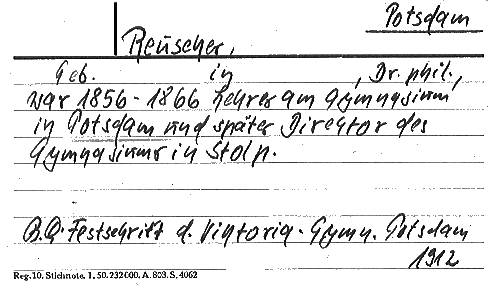 Potsdam
Reuscher,
Geb. in , Dr. phil.,
war 1856-1866 Lehrer am Gymnasium
in Potsdam und später Direktor des
Gymnasiums in Stolp.
B.Q. Festschrift d. Viktoria-Gymn. Potsdam
1912
Reg. 10. Stichnote. I. 50. 232000. A. 803. S. 4062